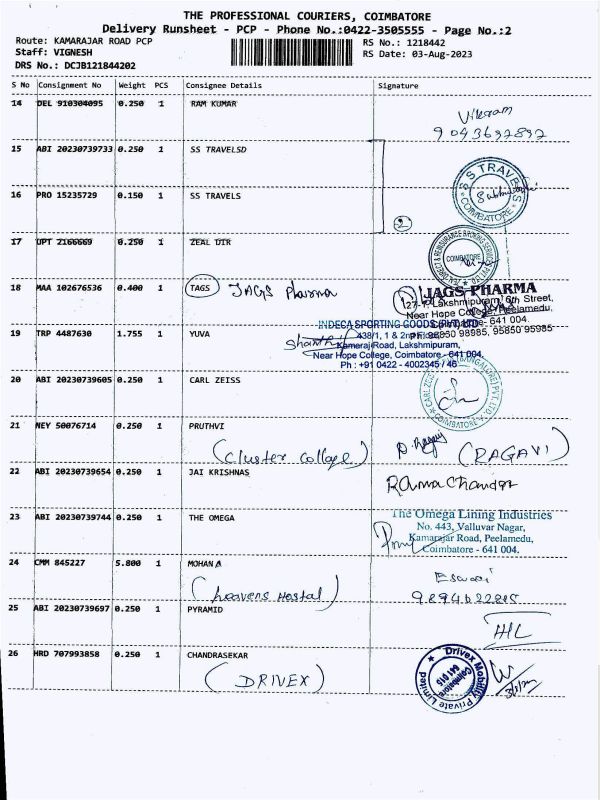 THE PROFESSIONAL COURIERS, COIMBATORE
Delivery Runsheet - PCP - Phone No.:0422-3505555 - Page No.:2
Route: KAMARAJAR ROAD PCP
RS No.: 1218442
Staff: VIGNESH
RS Date: 03-Aug-2023
DRS No.: DCJB121844202
S No Consignment No Weight PCS Consignee Details Signature
14 DEL 910304095 0.250 1 RAM KUMAR
Vikram
9043692892
15 ABI 20230739733 0.250 1 SS TRAVELSD
16 PRO 15235729 0.150 1 SS TRAVELS
S S TRAVELS
COIMBATORE
2
17 OPT 2166669 0.250 1 ZEAL DIR
COIMBATORE
18 MAA 102676536 0.400 1 TAGS JAGS Pharma
JAGS PHARMA
127-1, Lakshmipuram, 6th Street,
Near Hope College, Peelamedu,
Coimbatore - 641 004.
Ph: 96950 98985, 95850 95985
19 TRP 4487630 1.755 1 YUVA
INDECA SPORTING GOODS (P) LTD
438/1, 1 & 2nd Floor
Kamaraj Road, Lakshmipuram,
Near Hope College, Coimbatore - 641 004.
Ph : +91 0422 - 4002345 / 46
20 ABI 20230739605 0.250 1 CARL ZEISS
COIMBATORE
21 NEY 50076714 0.250 1 PRUTHVI
(Cluster Collage)
(RAGAVI)
22 ABI 20230739654 0.250 1 JAI KRISHNAS
Ramachandar
23 ABI 20230739744 0.250 1 THE OMEGA
The Omega Lining Industries
No. 443, Valluvar Nagar,
Kamarajar Road, Peelamedu,
Coimbatore - 641 004.
24 CMM 845227 5.800 1 MOHAN A
(heavens Hostal)
Eswari
25 ABI 20230739697 0.250 1 PYRAMID
26 HRD 707993858 0.250 1 CHANDRASEKAR
(DRIVEX)
Drivex Mobility Private Limited
Coimbatore
641 015